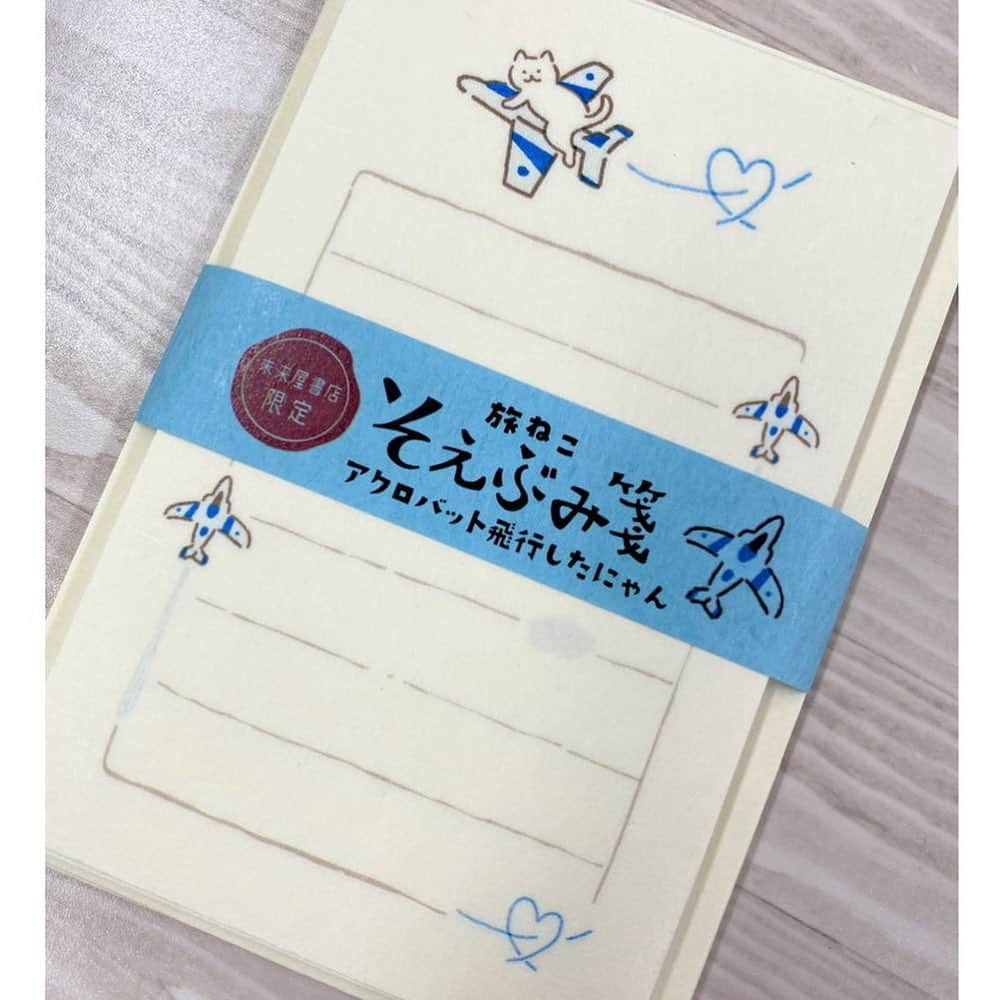 未来屋書店
限定
旅ねこ
そえぶみ箋
アクロバット飛行したにゃん